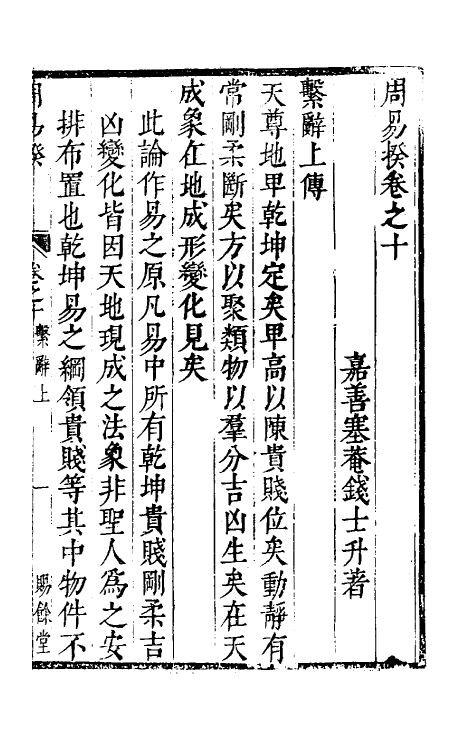 周易揆卷之十
嘉善塞菴錢士升著
繫辭上傳
天尊地卑乾坤定矣卑高以陳貴賤位矣動靜有
常剛柔斷矣方以聚類物以羣分吉凶生矣在天
成象在地成形變化見矣
此論作易之原凡易中所有乾坤貴賤剛柔吉
凶變化皆因天地現成之法象非聖人爲之安
排布置也乾坤易之綱領貴賤等其中物件不
周易揆 卷之十 繫辭上 一 賜餘堂